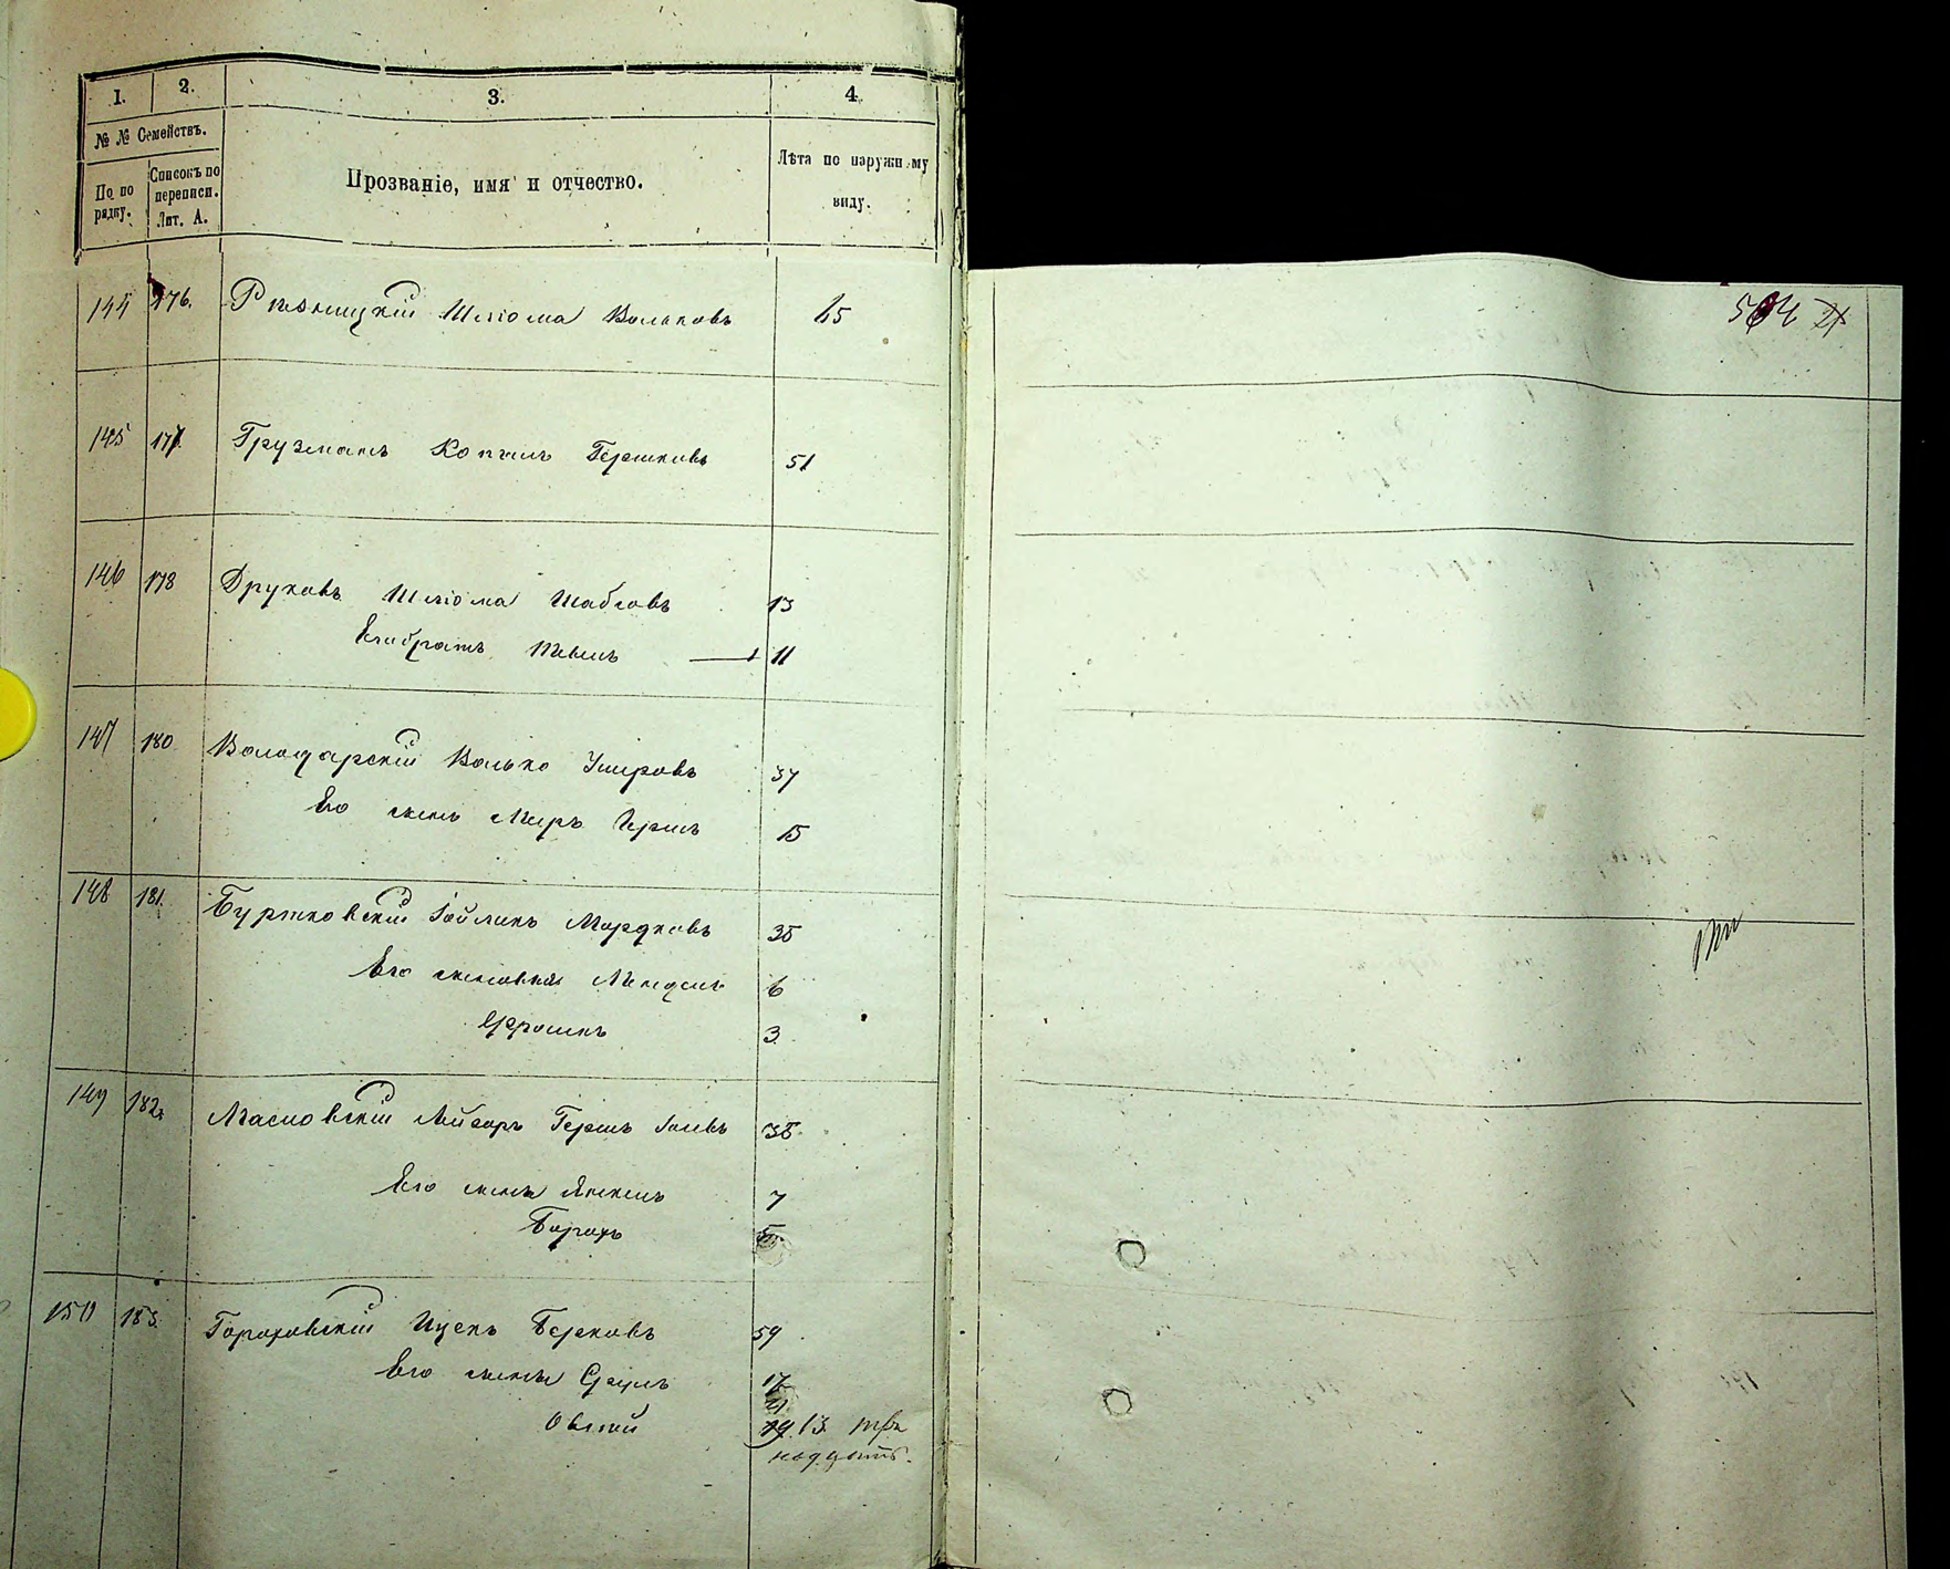 1. 2. 3. 4
№ № Семействъ.
По по рядку.
Списокъ по переписи. Лит. А.
Прозваніе, имя и отчество.
Лѣта по наружному
виду.
144 176. Рѣзницкій Шліома Вольковъ
504
145 177. Грузманъ Копель Гершковъ 51
146 178 Друковъ Шліома Шабсовъ 13
Его братъ Тевель 11
147 180 Володарскій Волько Умеровъ 37
Его сынъ Меръ Гершъ 15
148 181. Буртковскій Мордковъ 35
Его сыновья Мендель 6
Фроимъ 3
149 182. Масловскій Лейзоръ Гершъ 38
Его сыны Янкель 7
Борохъ 5
150 183. Гороховскій Ицекъ Берковъ 59
Его сыны Сруль 17
Овшій 13. три
надцать.